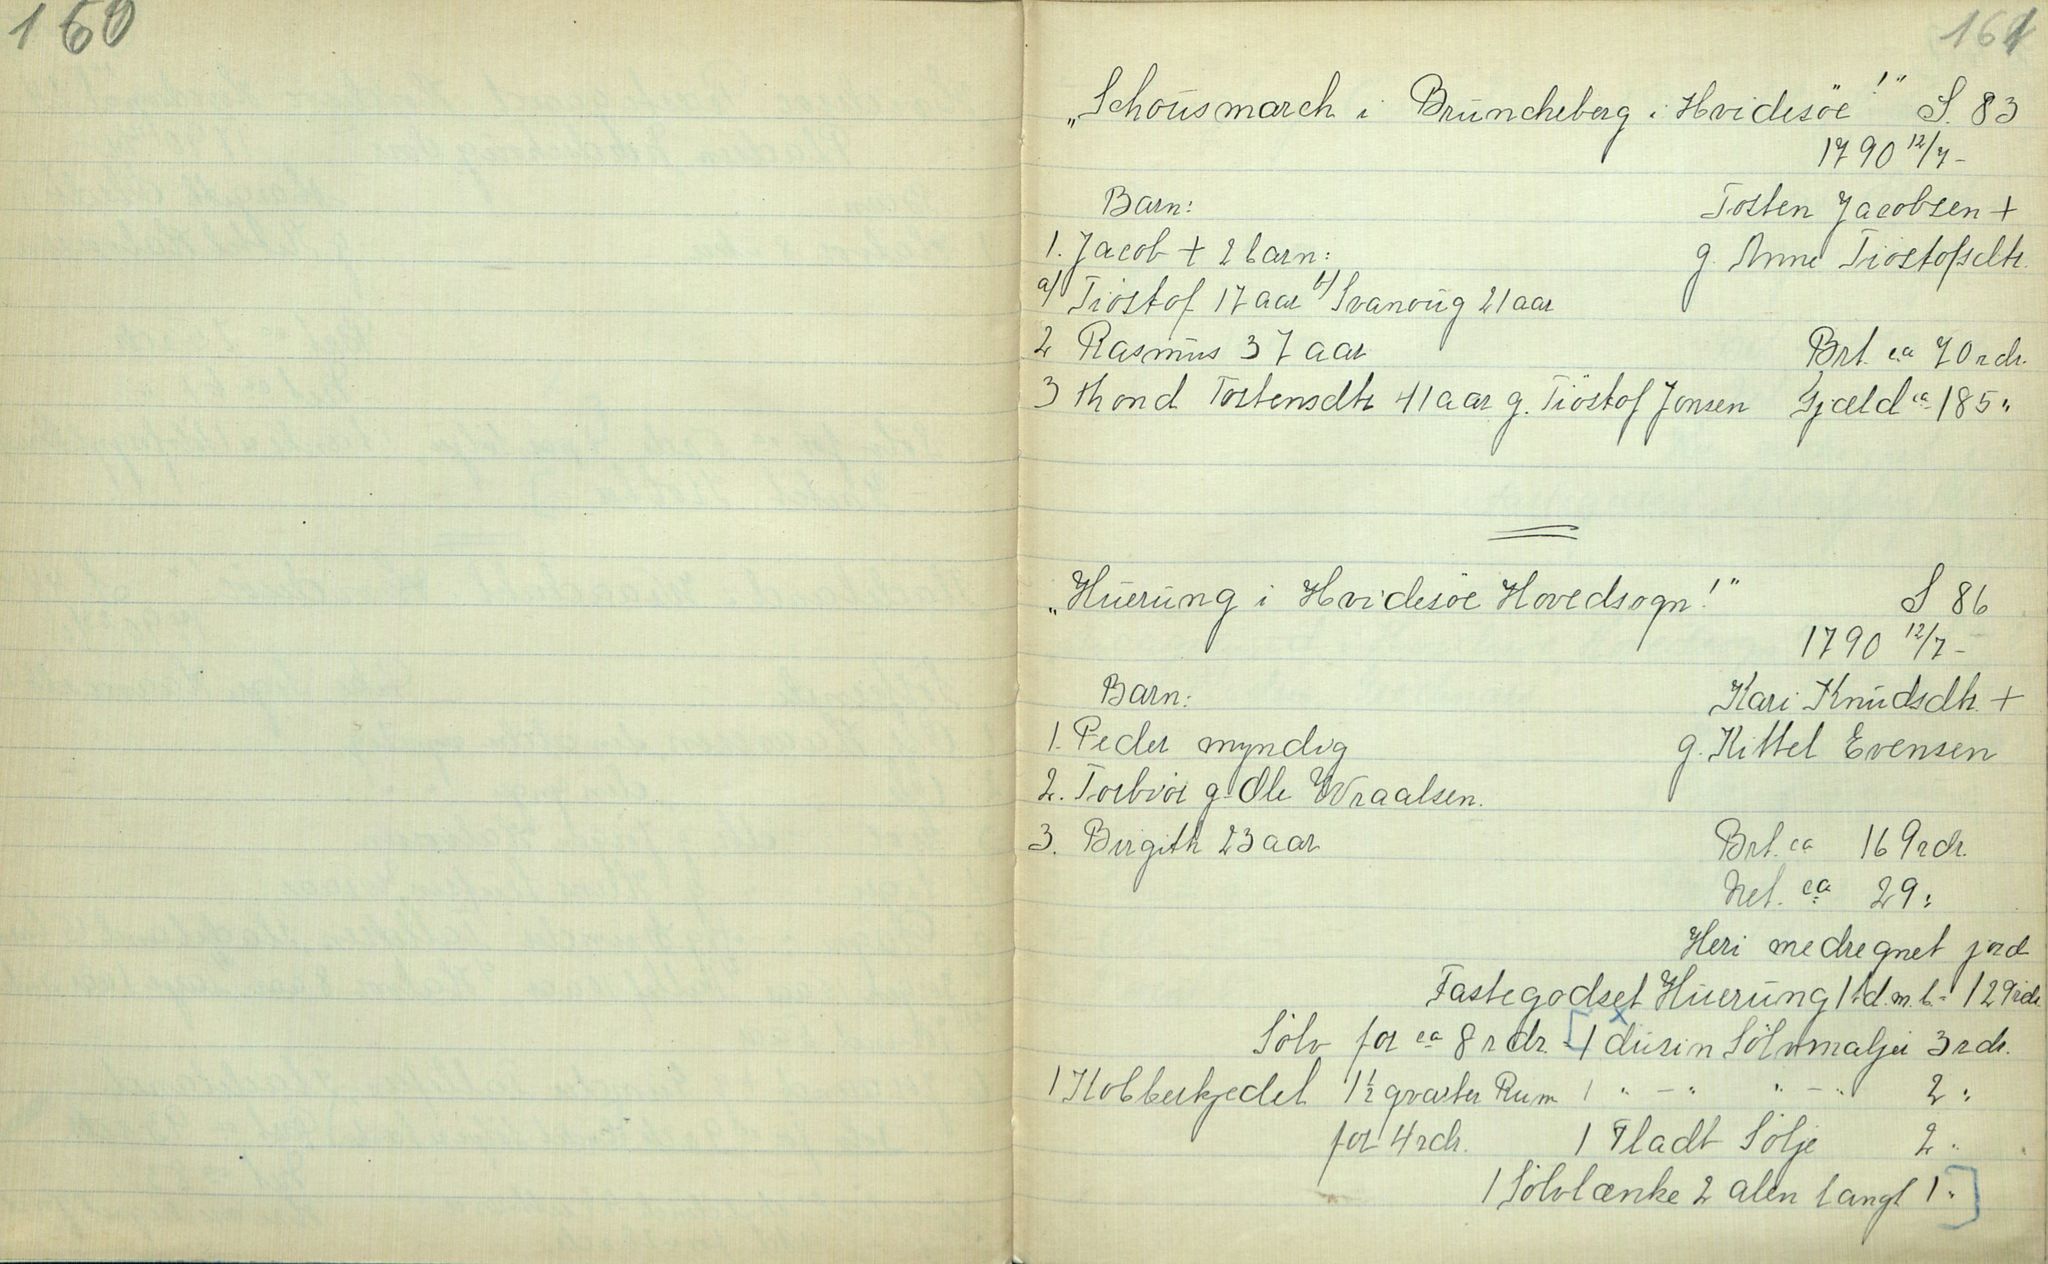 160
161
„Schousmarch i Bruncheberg i Hvidesöe!" S. 83
1790 12/7-
Barn: Tosten Jacobsen +
1. Jacob + 2 barn: g. Anne Tiostofsdtr.
a/ Tiostof 17 aar b/ Svanoug 21 aar
2 Rasmus 37 aar Brt. ca 70 rdr.
3 Thond Tostensdtr 41 aar g. Tiöstof Jonsen Gjæld ca 185 "
„Huerung i Hvidesöe Hovedsogn!" S 86
1790 12/7-
Barn: Kari Knudsdtr. +
1. Peder myndig g. Kittel Evensen
2. Torbior g. Ole Wraalsen.
3. Birgith 23 aar Brt. ca 169 rdr.
Net. ca 29 "
Heri medregnet jord
Fastegodset Huerung 1 td. m. b. = 129 rdr.
Sölv for ca 8 rdr. [1 dusin Sölvmaljer 3 rdr.
1 Kobberkjedel 1½ qvarter Rum 1 " - " " - " 2 "
for 4 rdr. 1 Fladt Sölje 2 "
1 Sölvlænke 2 alen langt 1 "]